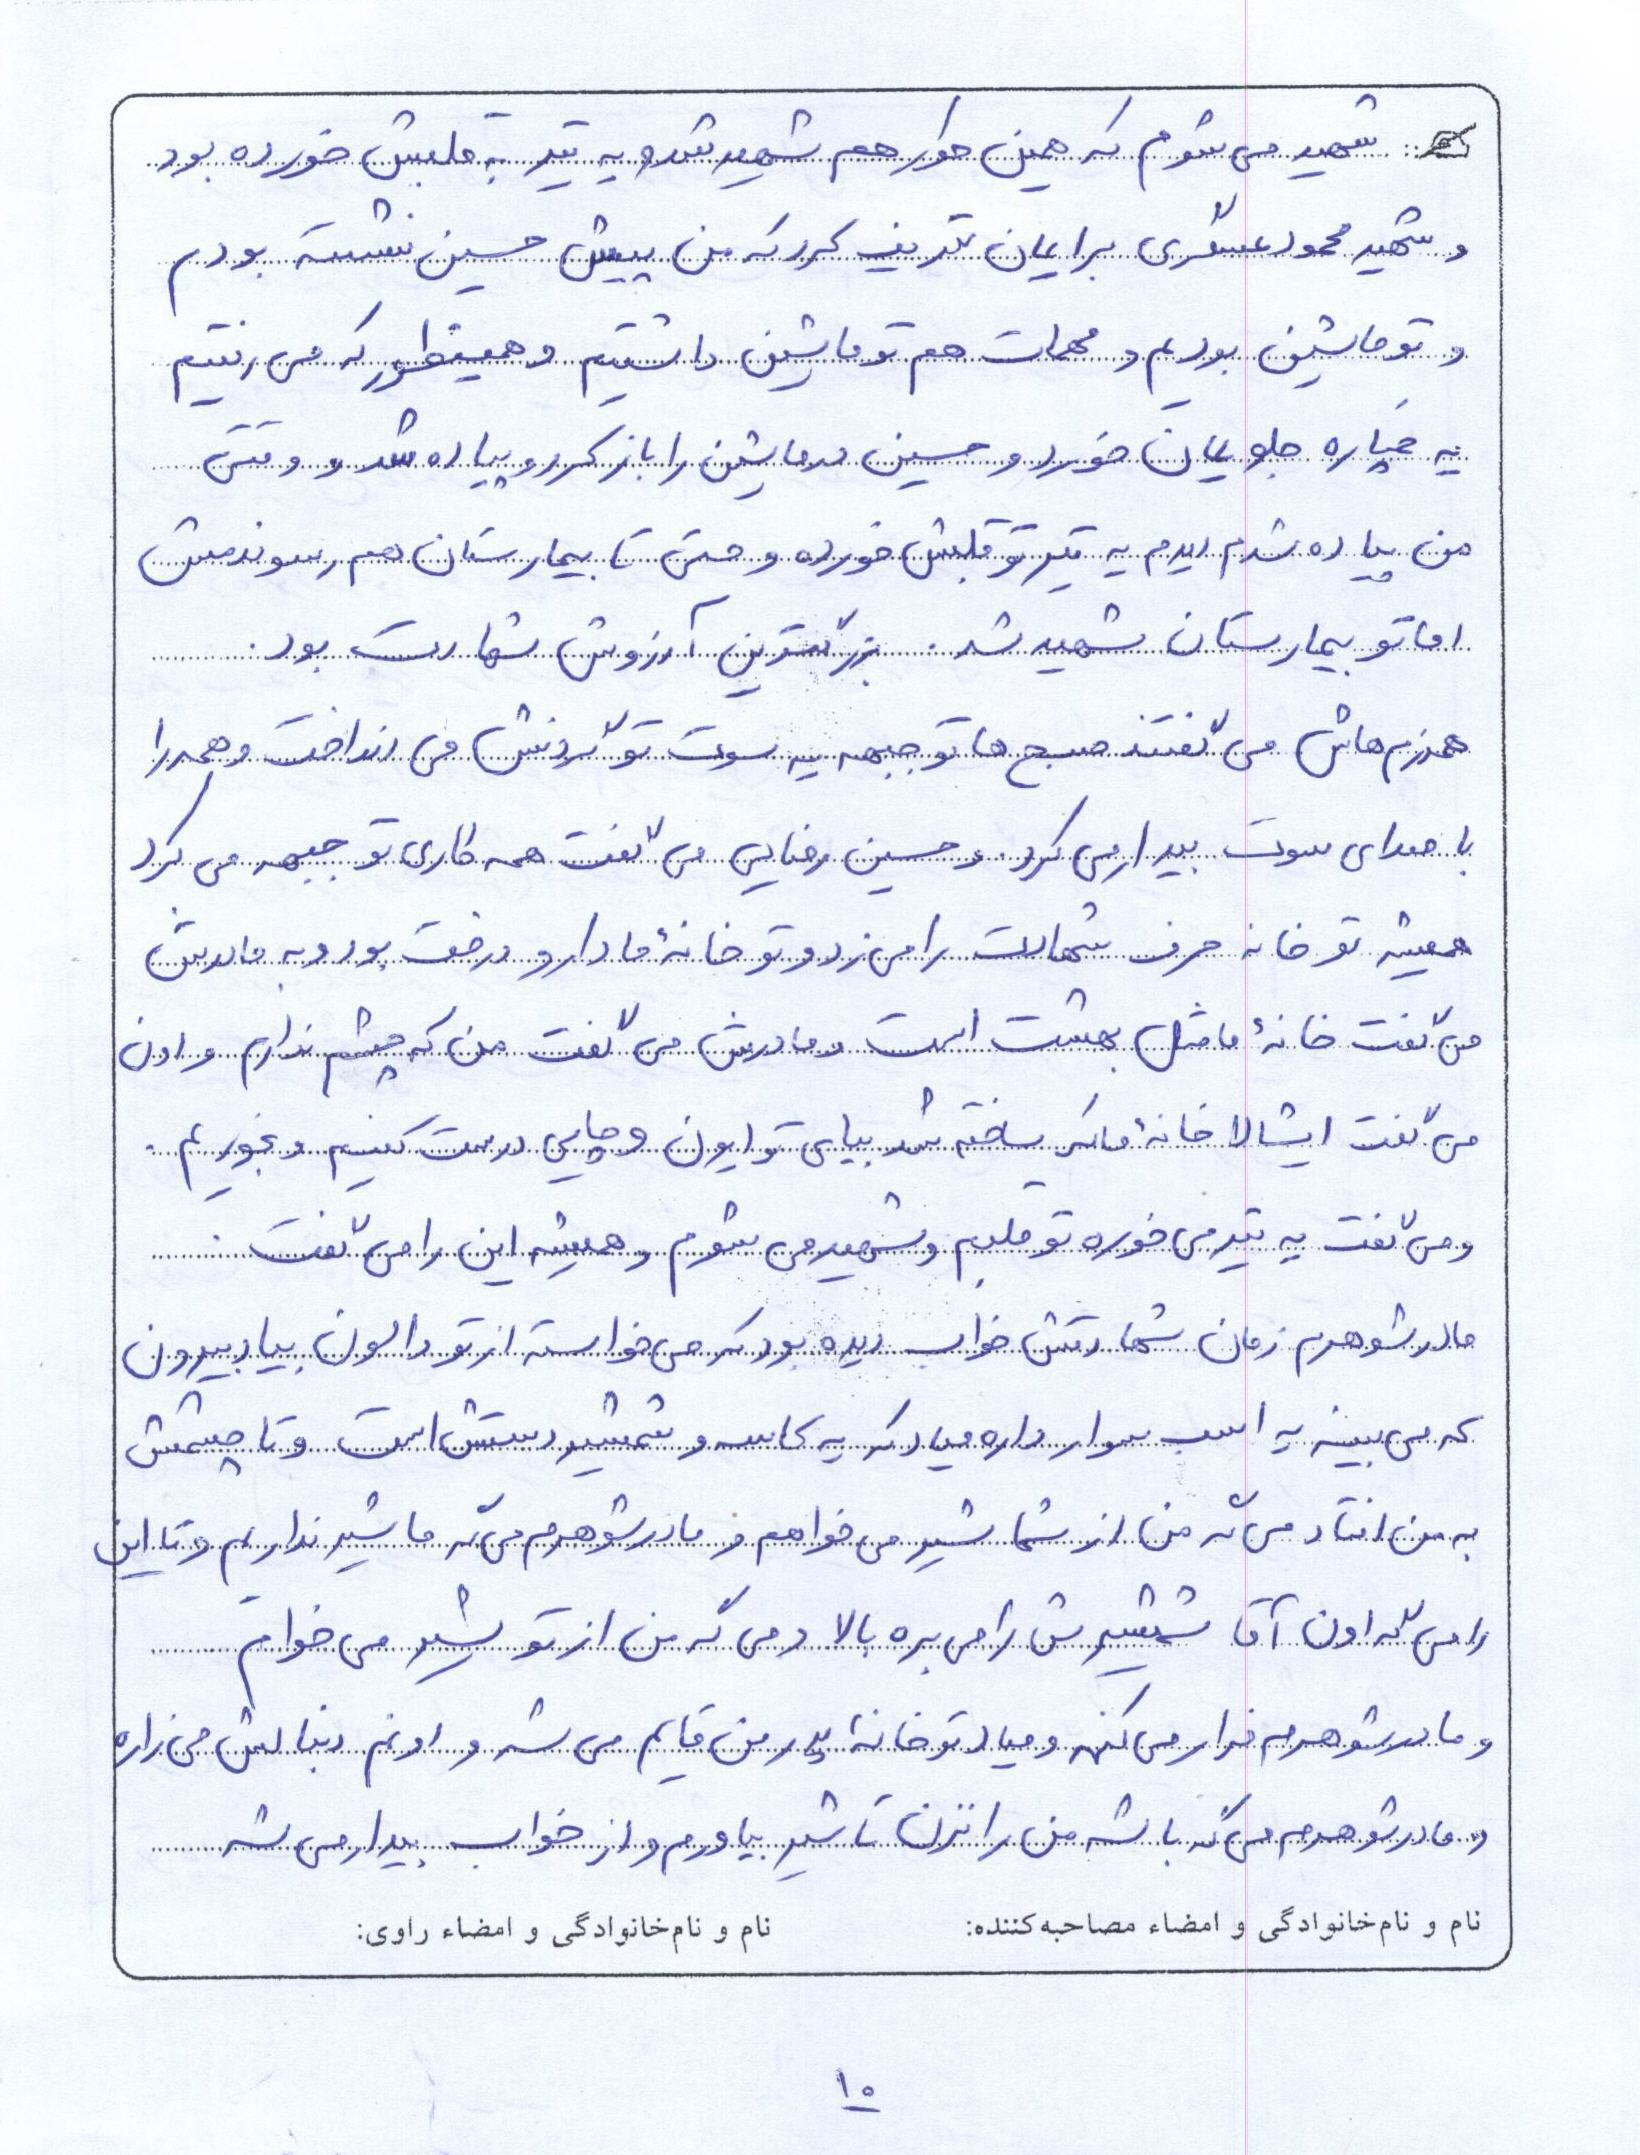 شهید می شوم که همین طور هم شهید شد و یه تیر به قلبش خورده بود
و شهید محمود عسگری برایمان تعریف کرد که من پیش حسین نشسته بودم
و تو ماشین بودیم و مهمات هم تو ماشین داشتیم و همینطور که می رفتیم
یه خمپاره جلویمان خورد و حسین در ماشین را باز کرد و پیاده شد و وقتی
من پیاده شدم دیدم یه تیر تو قلبش خورده و حتی تا بیمارستان هم رسوندمش
اما تو بیمارستان شهید شد. بزرگترین آرزوش شهادت بود.
همرزم هاش می گفتند صبح ها تو جبهه یه سوت تو گردنش می انداخت و همه را
با صدای سوت بیدار می کرد. و حسین رضایی می گفت همه کاری تو جبهه می کرد
همیشه تو خانه حرف شهادت را می زد و تو خانۀ ما دار و درخت بود و به مادرش
می گفت خانۀ ما مثل بهشت است و مادرش می گفت من که چشم ندارم و اون
می گفت ایشالا خانۀ ما که ساخته شد بیای تو ایون و چایی درست کنیم و بخوریم.
و می گفت یه تیر می خوره تو قلبم و شهید می شوم و همیشه این را می گفت.
مادر شوهرم زمان شهادتش خواب دیده بود که می خواسته از تو دالون بیاد بیرون
که می بینه یه اسب سوار داره میاد که یه کاسه و شمشیر دستش است و تا چشمش
به من افتاد می گه من از شما شیر می خواهم و مادر شوهرم می گه ما شیر نداریم و تا این
را می گه اون آقا شمشیرش را می بره بالا و می گه من از تو شیر می خوام
و مادر شوهرم فرار می کنه و میاد تو خانۀ پدر من قایم می شه و اونم دنبالش می زاره
و مادر شوهرم می گه باشه من را نزن تا شیر بیاورم و از خواب بیدار می شه
نام و نام‌خانوادگی و امضاء مصاحبه‌کننده: نام و نام‌خانوادگی و امضاء راوی:
۱۰